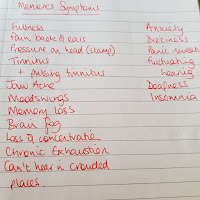 Menieres Symptoms
Fullness
Pain back of ears
Pressure on head (clamp)
Tinnitus
+ pulsing tinnitus
Jaw Ache
Moodswings
Memory loss
Brain fog
Loss of concentration
Chronic Exhaustion
Can't hear in crowded
places.
Anxiety
Dizziness
Panic sweats
Fluctuating
hearing
Deafness
Insomnia